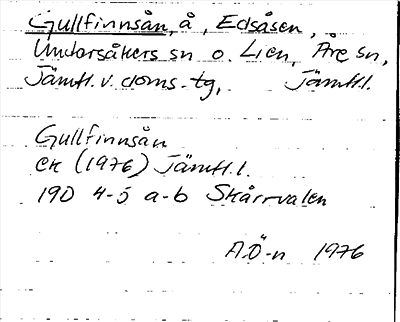 Gullfinnsån, å, Edsåsen,
Undersåkers sn o. Lien, Åre sn,
Jämtl. v. doms. tg, Jämtl. l.
Gullfinnsån
ek (1976) Jämtl. l.
19D 4-5 a-b Skårrvalen
A.Ö-n 1976